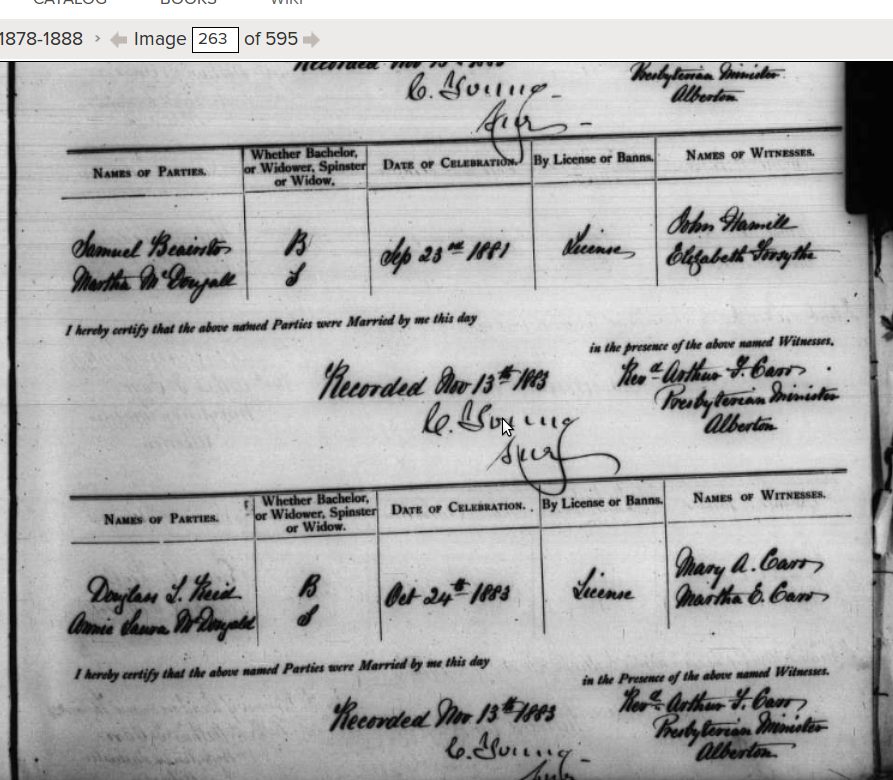 CATALOG BOOKS WIKI
1878-1888 › Image 263 of 595
Recorded Nov 13th 1883
Presbyterian Minister
C. Young
Alberton
NAMES OF PARTIES. Whether Bachelor, or Widower, Spinster or Widow. DATE OF CELEBRATION. By License or Banns. NAMES OF WITNESSES.
Samuel Beairsto B Sep 23rd 1881 License John Hamill
Martha McDougall S Elizabeth Forsythe
I hereby certify that the above named Parties were Married by me this day
in the presence of the above named Witnesses.
Recorded Nov 13th 1883 Revd Arthur F. Carr
Presbyterian Minister
C. Young Alberton
NAMES OF PARTIES. Whether Bachelor, or Widower, Spinster or Widow. DATE OF CELEBRATION. By License or Banns. NAMES OF WITNESSES.
Mary A. Carr
Douglass S. Reid B Oct 24th 1883 License Martha E. Carr
Annie Laura McDougald S
I hereby certify that the above named Parties were Married by me this day
in the Presence of the above named Witnesses.
Recorded Nov 13th 1883 Revd Arthur F. Carr
Presbyterian Minister
C. Young Alberton